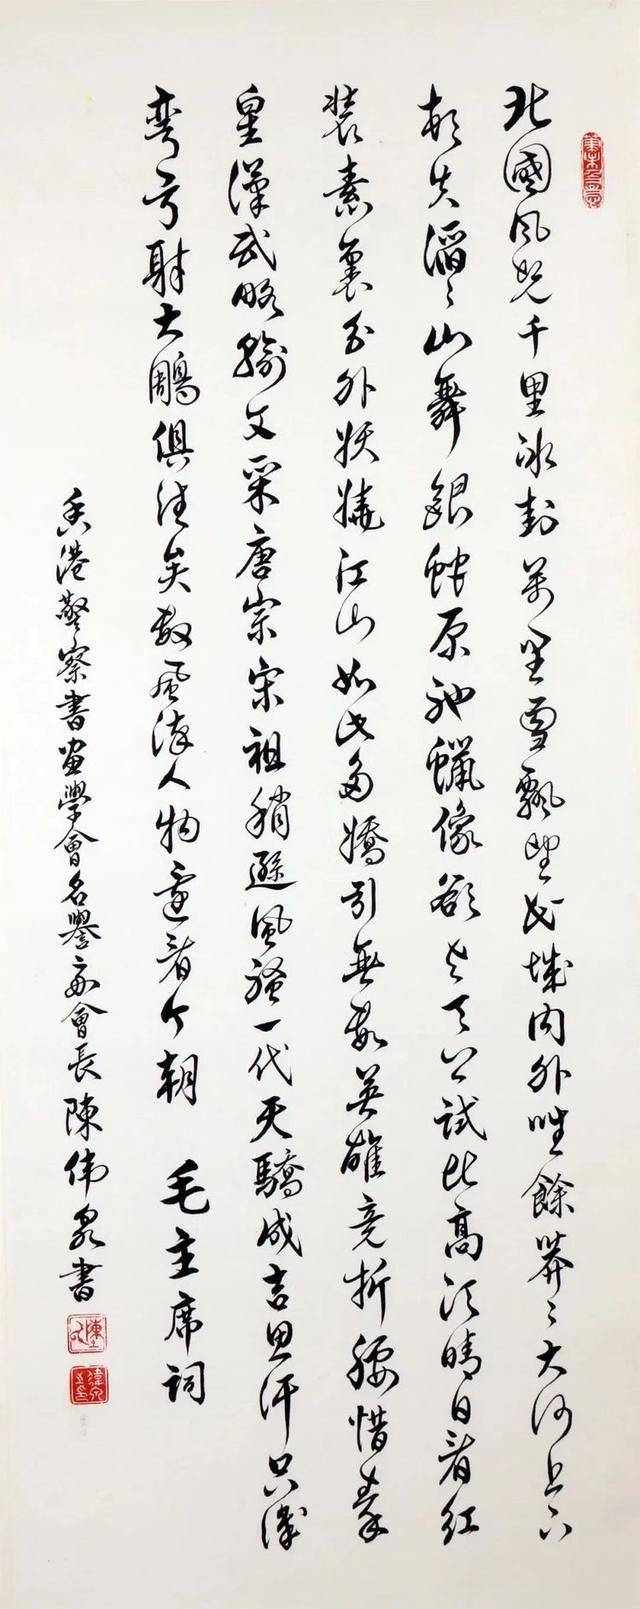 北國風光千里冰封萬里雪飄望長城内外唯餘莽〻大河上下
頓失滔〻山舞銀蛇原馳蠟像欲與天公試比高須晴日看紅
裝素裹分外妖嬈江山如此多嬌引無數英雄競折腰惜秦
皇漢武略輸文采唐宗宋祖稍遜風騷一代天驕成吉思汗只識
彎弓射大鵰俱往矣數風流人物還看今朝 毛主席詞
香港警察書畫學會名譽會長陳偉泉書